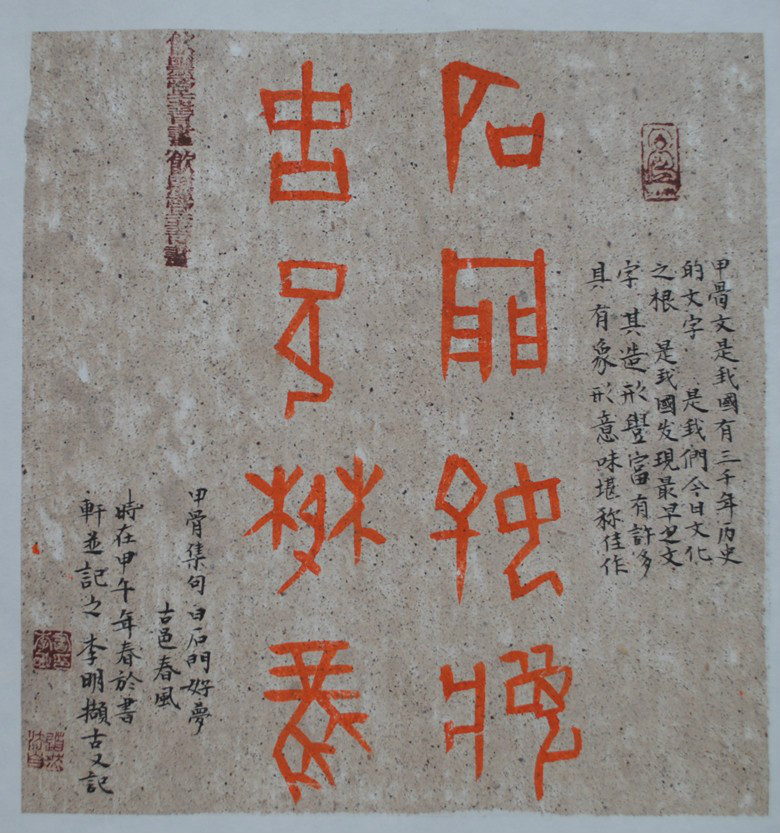 甲骨文是我國有三千年历史
的文字 是我們今日文化
之根 是我國发現最早之文
字 其造形豐富有許多
具有象形意味堪称佳作
石門好夢
古邑春風
甲骨集句 白石門好夢
古邑春風
時在甲午年春於書
軒並記之 李明擷古又記